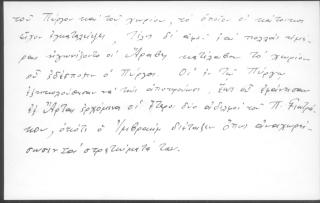 τοῦ Πύργου καὶ τοῦ χωρίου, τὸ ὁποῖον οἱ κάτοικοι
εἶχον ἐγκαταλείψει, Τρεῖς δὲ ἀμοι ἐπὶ πολλὰς ἡμέ-
ρας ἠγωνίζοντο οἱ Ἄραβες κατέλαβον τὸ χωρίον
οὗ ἐδέσποζεν ὁ Πύργος. Οἱ ἐν τῷ Πύργῳ
ἐξηκολούθησαν νὰ τοὺς ἀποκρούουν, ἕως οὗ ἐφάνησαν
ἐξ Ἄρτης ἐρχόμενοι οἱ ἕτεροι δύο ἀδελφοὶ τοῦ Π. Γιατρά-
κου, ὁπότε ὁ Ἰμβραὴμ διέταξεν ὅπως ἀναχωρή-
σωσιν τὰ στρατεύματά του.